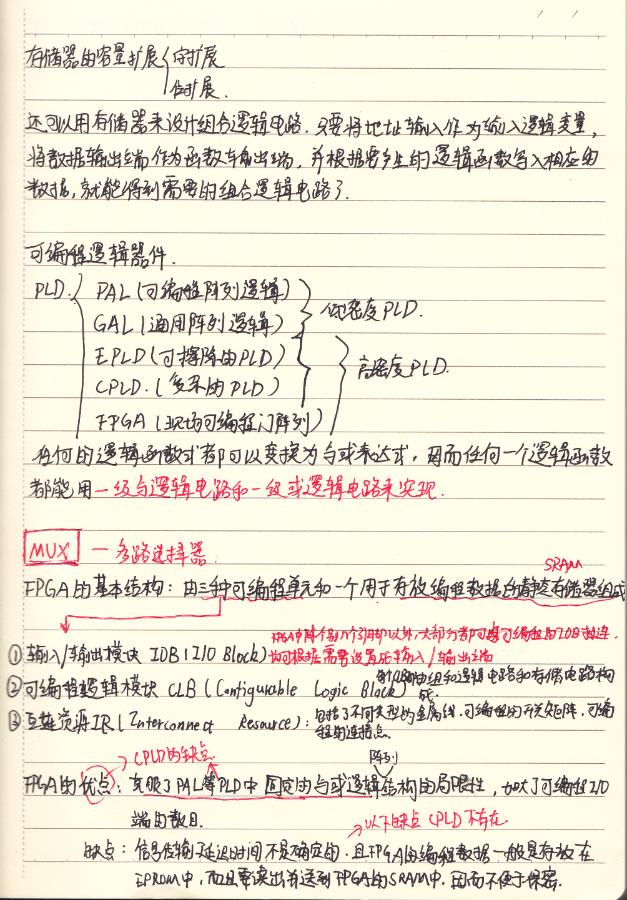 存储器的容量扩展 字扩展
位扩展.
还可以用存储器来设计组合逻辑电路. 只要将地址输入作为输入逻辑变量,
将数据输出端作为函数输出端, 并根据要产生的逻辑函数写入相应的
数据, 就能得到需要的组合逻辑电路了.
可编程逻辑器件.
PLD. PAL (可编程阵列逻辑)
GAL (通用阵列逻辑) 低密度PLD.
EPLD (可擦除的PLD)
CPLD. (复杂的PLD) 高密度PLD.
FPGA (现场可编程门阵列)
任何的逻辑函数式都可以变换为与或表达式, 因而任何一个逻辑函数
都能用一级与逻辑电路和一级或逻辑电路来实现.
MUX — 多路选择器.
SRAM
FPGA的基本结构: 由三种可编程单元和一个用于存放编程数据的静态存储器组成
FPGA中除个别几个引脚以外, 大部分都可与可编程的IOB相连,
① 输入/输出模块 IOB (I/O Block) 均可根据需要设置成输入/输出端
② 可编程逻辑模块 CLB (Configurable Logic Block) 由组和逻辑电路和存储电路构成.
③ 互连资源IR (Interconnect Resource): 包括了不同类型的金属线, 可编程的开关矩阵, 可编
程的连接点.
CPLD的缺点 阵列
FPGA的优点: 克服了PAL等PLD中固定的与或逻辑结构的局限性, 加大了可编程I/O
端的数目. 以下缺点 CPLD 不存在.
缺点: 信号传输延迟时间不是确定的. 且FPGA的编程数据一般是存放在
EPROM中, 而且要读出并送到FPGA的SRAM中, 因而不便于保密.